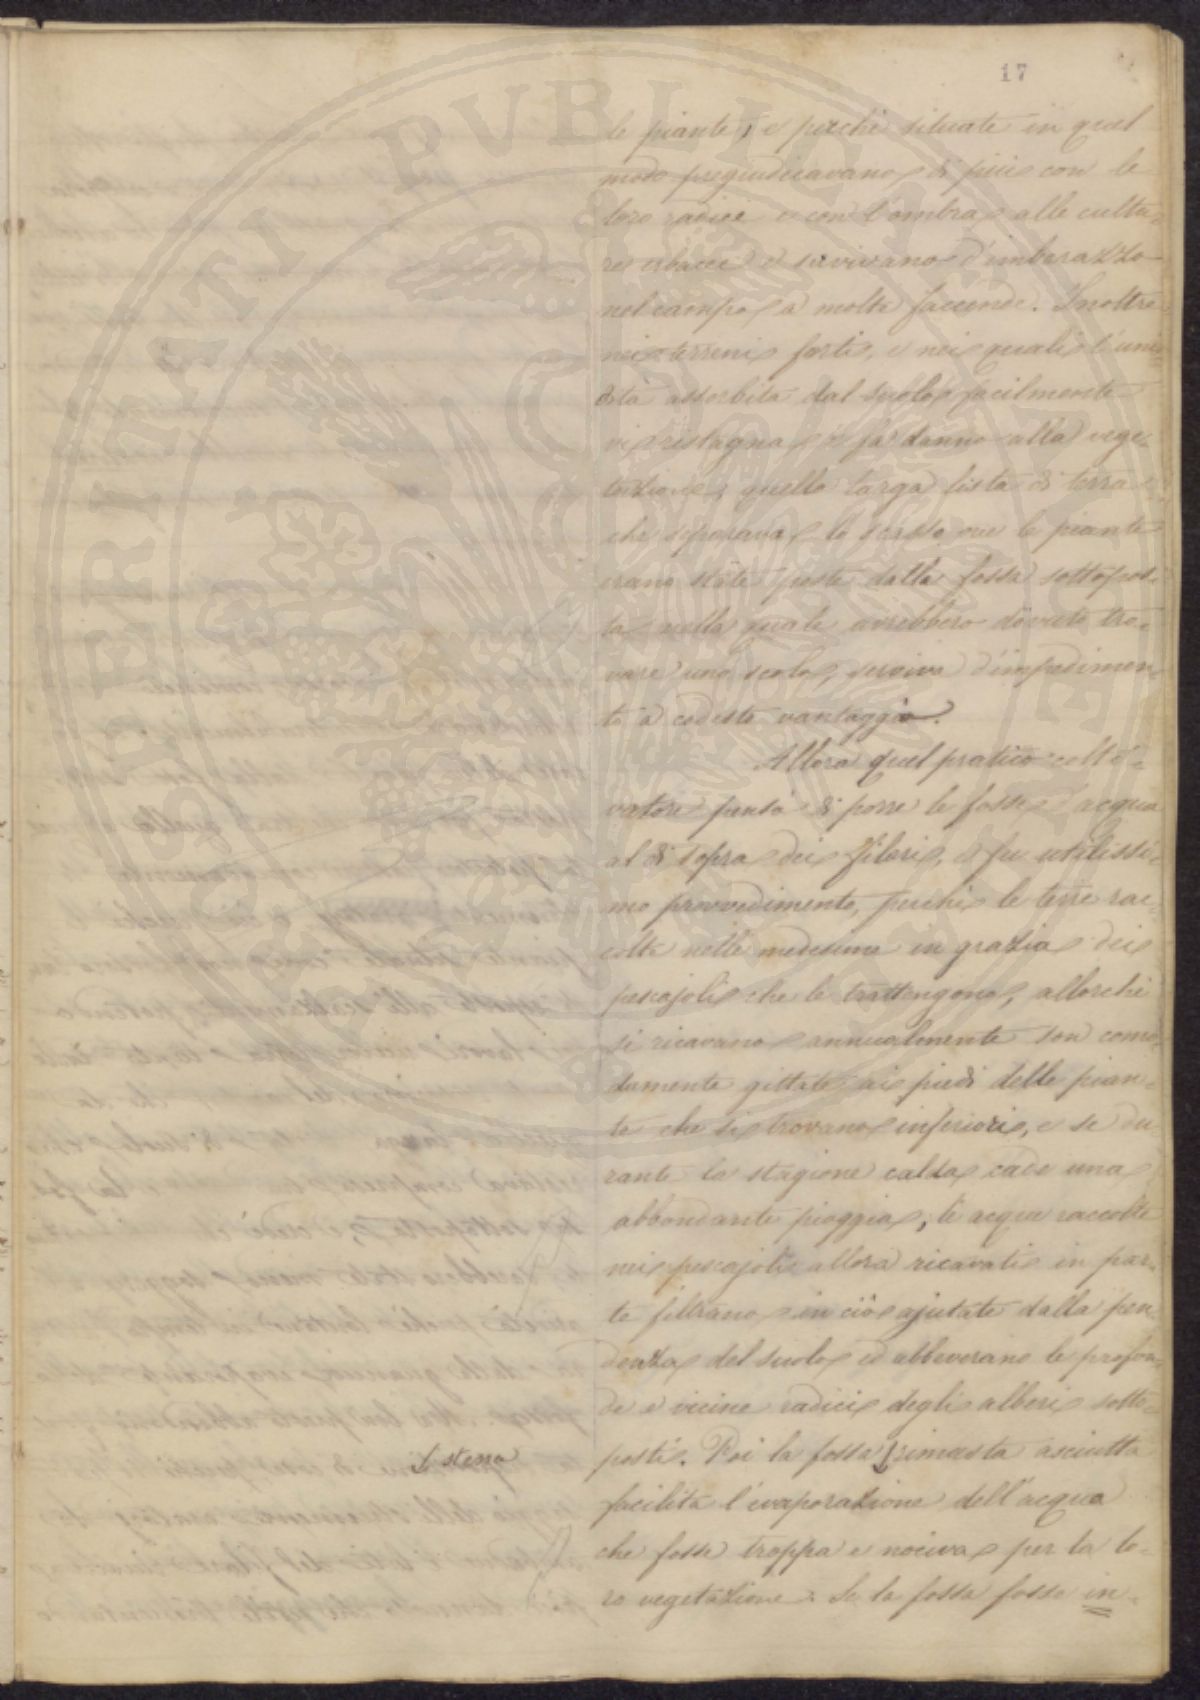 17
le piante, e perchè situate in quel
modo pregiudicavano di più con le
loro radici e con l'ombra alle cultu-
re erbacee e servivano d'imbarazzo
nel campo a molte faccende. Inoltre
nei terreni forti, e nei quali l'umi-
dità assorbita dal suolo facilmente
vi ristagna e fa danno alla vege-
tazione, quella larga lista di terra
che separava lo scasso ove le piante
erano state poste dalla fossa sottopos-
ta nella quale avrebbero dovuto tro-
vare uno scolo, serviva d'impedimen-
to a codesto vantaggio.
Allora quel pratico colti-
vatore pensò di porre le fosse acqua
al di sopra dei filari, e fu utilissi-
mo provvedimento, perchè le terre rac-
colte nelle medesime in grazia dei
pescajoli che le trattengono, allorchè
si ricavano annualmente son como-
damente gittate ai piedi delle pian-
te che si trovano inferiori, e se du-
rante la stagione calda cade una
abbondante pioggia, le acque raccolte
nei pescajoli allora ricavati in par-
te filtrano in ciò ajutate dalla pen-
denza del suolo ed abbeverano le profon-
de e vicine radici degli alberi sotto-
posti. Poi la fossa rimasta asciutta
stessa
facilita l'evaporazione dell'acqua
che fosse troppa e nociva per la lo-
ro vegetazione. Se la fossa fosse in-
PERITATI PVBLICAE